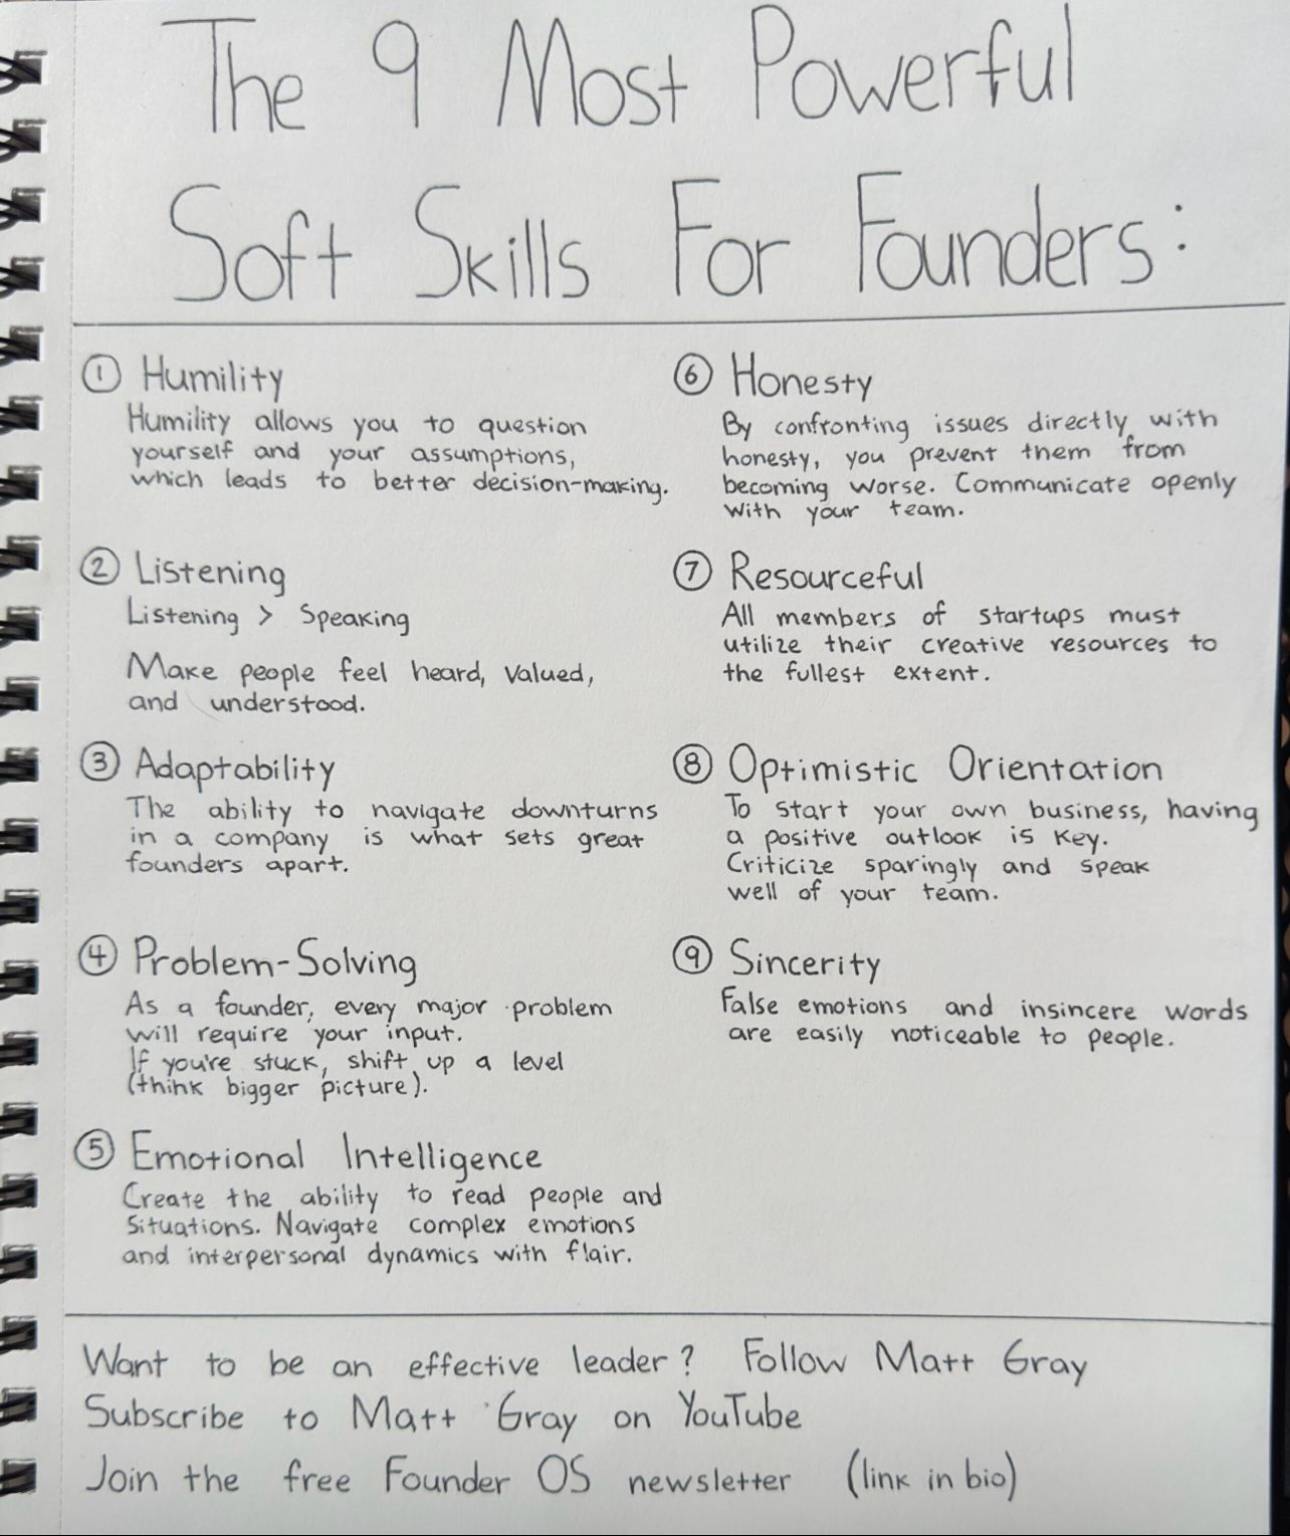 The 9 Most Powerful
Soft Skills For Founders:
① Humility
Humility allows you to question
yourself and your assumptions,
which leads to better decision-making.
② Listening
Listening > Speaking
Make people feel heard, valued,
and understood.
③ Adaptability
The ability to navigate downturns
in a company is what sets great
founders apart.
④ Problem-Solving
As a founder, every major problem
will require your input.
If you're stuck, shift up a level
(think bigger picture).
⑤ Emotional Intelligence
Create the ability to read people and
situations. Navigate complex emotions
and interpersonal dynamics with flair.
⑥ Honesty
By confronting issues directly with
honesty, you prevent them from
becoming worse. Communicate openly
with your team.
⑦ Resourceful
All members of startups must
utilize their creative resources to
the fullest extent.
⑧ Optimistic Orientation
To start your own business, having
a positive outlook is key.
Criticize sparingly and speak
well of your team.
⑨ Sincerity
False emotions and insincere words
are easily noticeable to people.
Want to be an effective leader? Follow Matt Gray
Subscribe to Matt Gray on YouTube
Join the free Founder OS newsletter (link in bio)